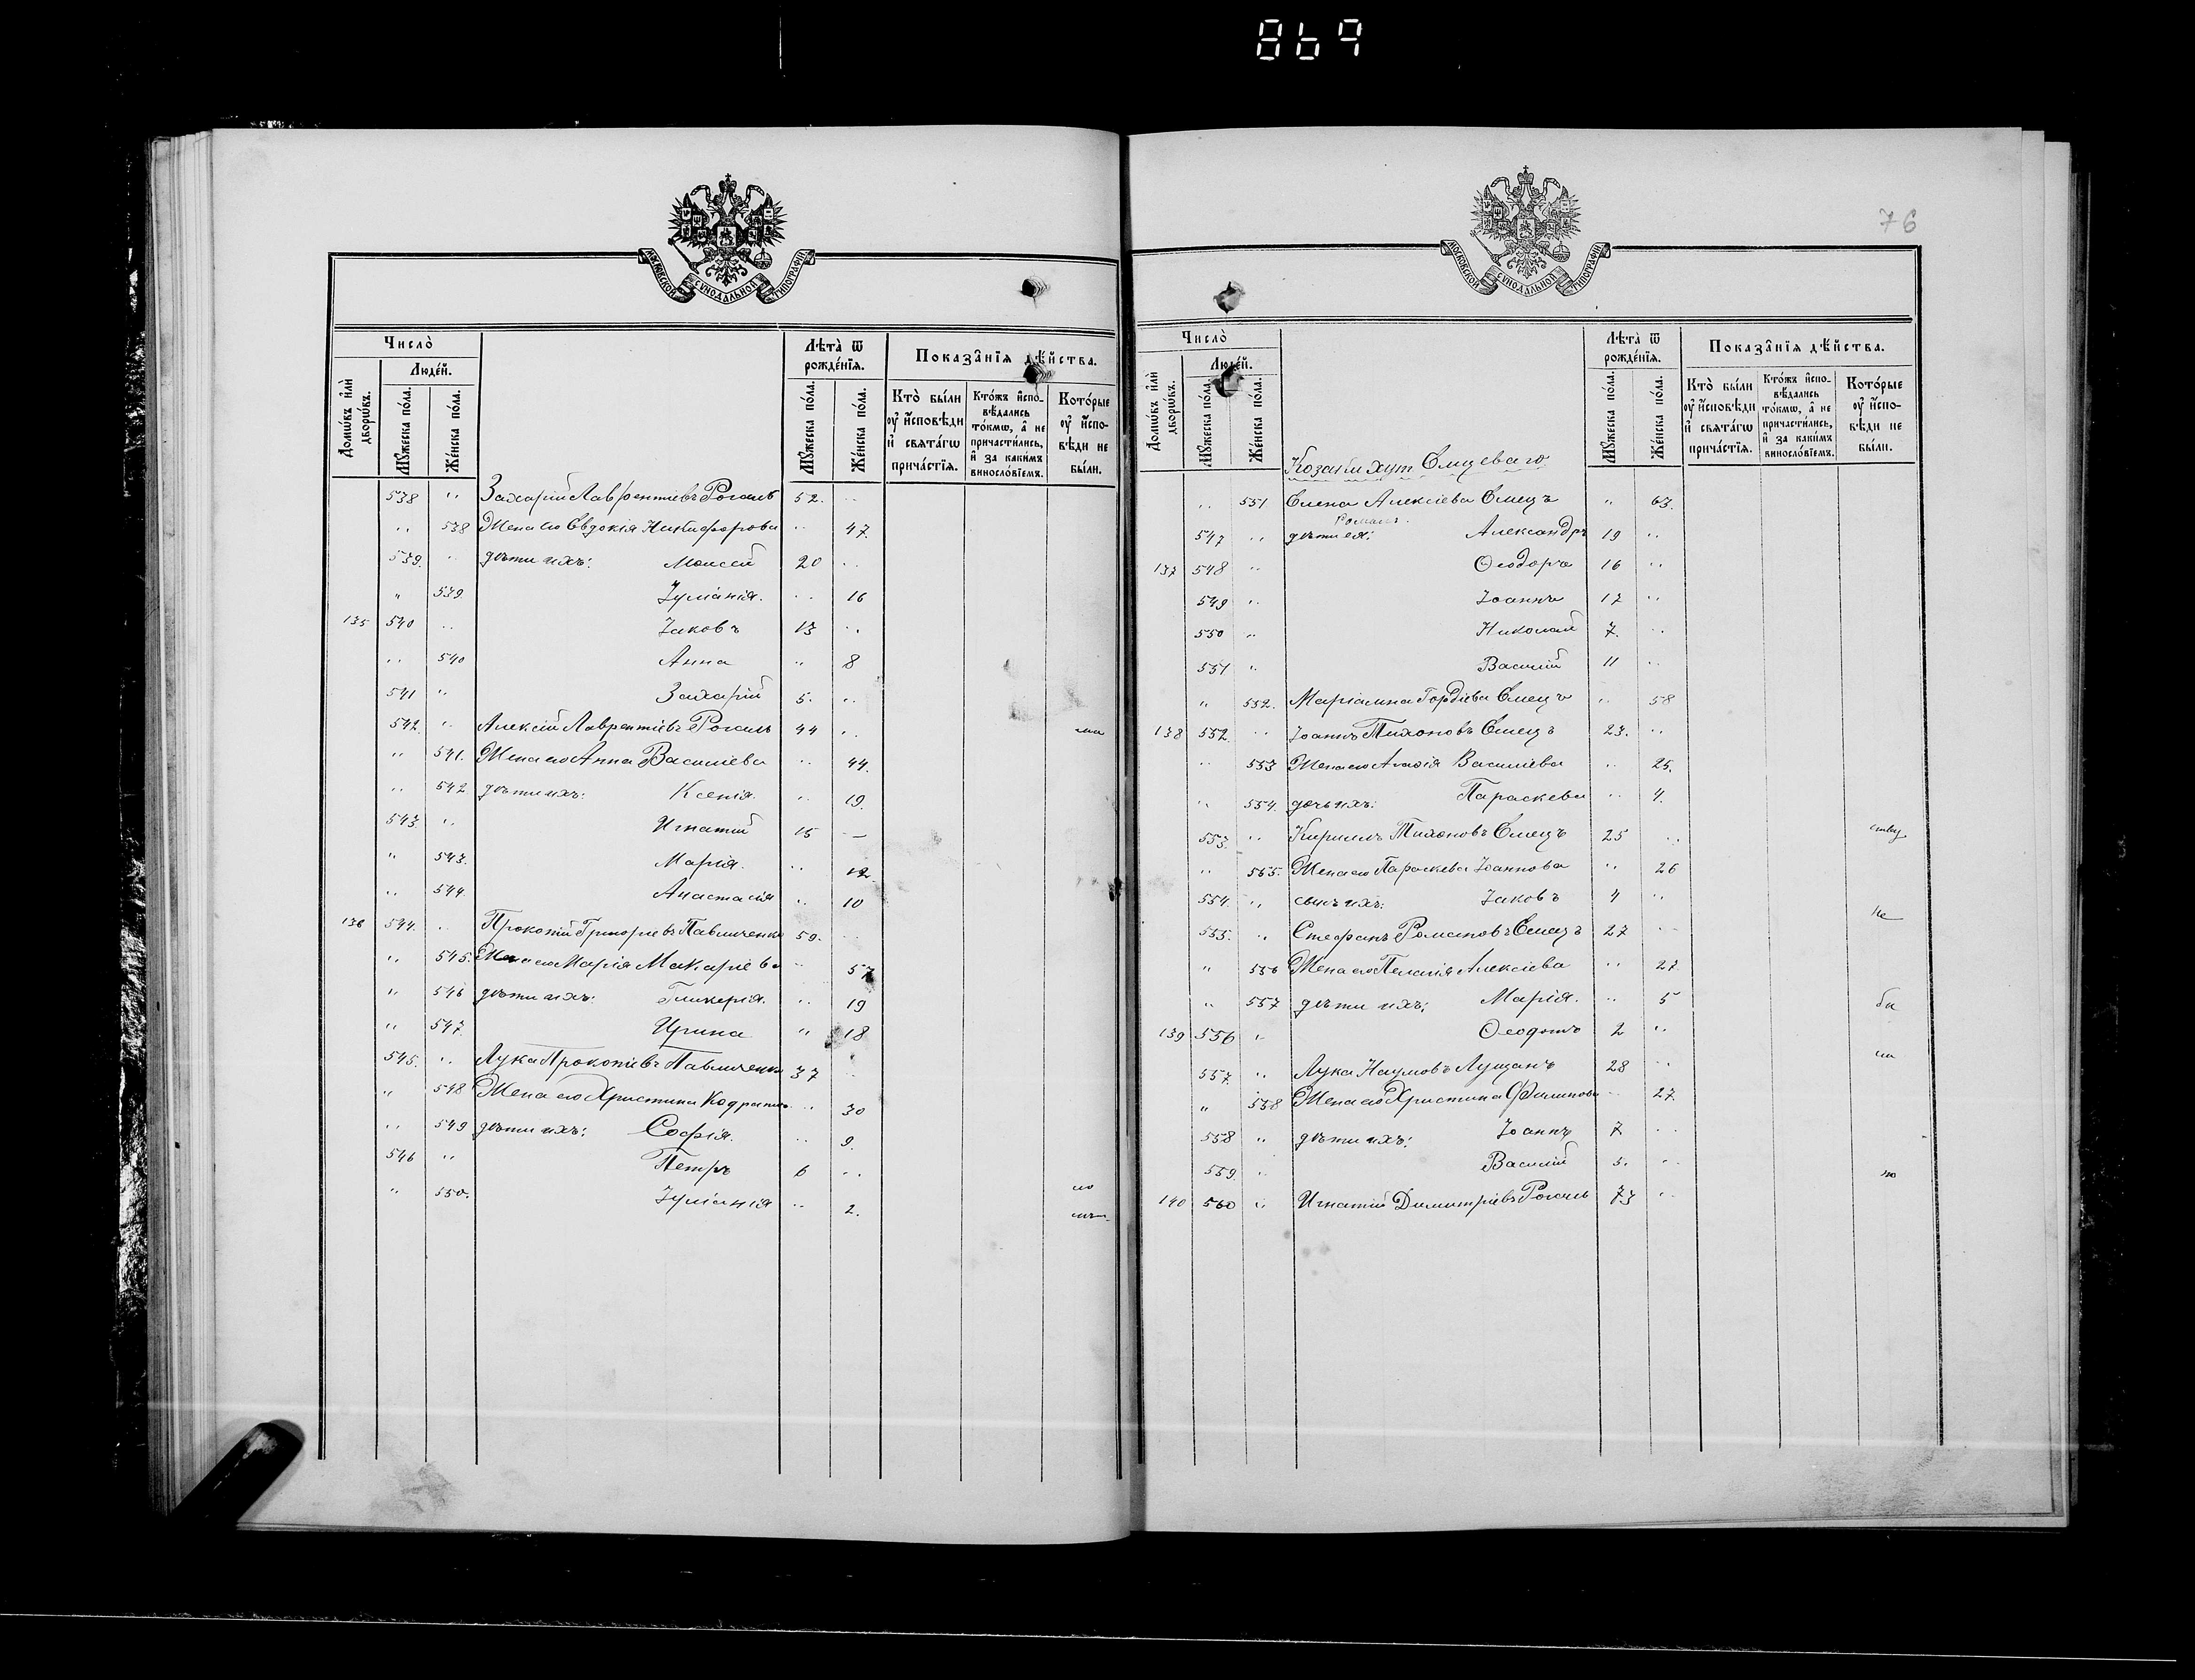 869
МОСКОВСКОЙ СѴНОДАЛЬНОЙ ТИПОГРАФІИ
Число̀
Люде́й.
Домѡ́въ и҆лѝ дворѡ́въ.
Мꙋ́жеска по́ла.
Же́нска по́ла.
Лѣ́та ѿ рожде́нїѧ.
Мꙋ́жеска по́ла.
Же́нска по́ла.
Показа̑нїѧ дѣ́йства.
Кто̀ бы́ли оу҆ и҆́сповѣди и҆ свѧта́гѡ прича́стїѧ.
Кто́жъ и҆спо-вѣ́дались то́кмѡ, а҆ не причасти́лись, и҆ за каки́мъ винослові́емъ.
Кото́рые оу҆ и҆́спо-вѣди не бы́ли.
538 " Захарій Лаврентіевъ Рогаль 52. "
" 538 Жена его Евдокія Никифорова " 47.
539. " дѣти ихъ: Моисей 20 "
" 539 Іуліанія. " 16
135 540 " Іаковъ 13 "
" 540 Анна " 8
541 " Захарій 5. "
542. " Алексій Лаврентіевъ Рогаль 44 "
" 541. Жена его Анна Василіева " 44.
" 542 дѣти ихъ: Ксенія. " 19.
543. " Игнатій 15 —
" 543. Марія. " 12.
" 544. Анастасія " 10
136 544. " Прокопій Григоріевъ Павличенко 59. "
" 545. Жена его Марія Макаріева " 57
" 546 дѣти ихъ: Гликерія. " 19
" 547 Ирина " 18
545. " Лука Прокопіевъ Павличенко 37 "
" 548 Жена его Христина Кодратова " 30
" 549 дѣти ихъ: Софія. " 9.
546 " Петръ 6 "
" 550. Іуліанія " 2.
76
МОСКОВСКОЙ СѴНОДАЛЬНОЙ ТИПОГРАФІИ
Число̀
Люде́й.
Домѡ́въ и҆лѝ дворѡ́въ.
Мꙋ́жеска по́ла.
Же́нска по́ла.
Лѣ́та ѿ рожде́нїѧ.
Мꙋ́жеска по́ла.
Же́нска по́ла.
Показа̑нїѧ дѣ́йства.
Кто̀ бы́ли оу҆ и҆́сповѣди и҆ свѧта́гѡ прича́стїѧ.
Кто́жъ и҆спо-вѣ́дались то́кмѡ, а҆ не причасти́лись, и҆ за каки́мъ винослові́емъ.
Кото́рые оу҆ и҆́спо-вѣди не бы́ли.
Козаки хут Емцеваго
" 551 Елена Алексіева Емецъ " 63.
Роман.
547 " дѣти ея: Александръ 19 "
137 548 " Ѳеодоръ 16 "
549 " Іоаннъ 17 "
550 " Николай 7. "
551 " Василій 11 "
" 552. Маріамна Гордіева Емецъ " 58
138 552. " Іоаннъ Тихоновъ Емецъ 23. "
" 553 Жена его Агафія Василіева " 25.
" 554. дочь ихъ: Параскева " 4.
553. " Кириллъ Тихоновъ Емецъ 25 "
" 555. Жена его Параскева Іоаннова " 26
554. " сынъ ихъ: Іаковъ 4 "
не
555. " Стефанъ Романовъ Емецъ 27 "
" 556 Жена его Пелагія Алексіева " 27
" 557 дѣти ихъ: Марія. " 5
139 556 " Ѳеодотъ 2 "
557. " Лука Наумовъ Лущанъ 28 "
" 558 Жена его Христина Филипова " 27.
558 " дѣти ихъ: Іоаннъ 7 "
559. " Василій 5. "
140 560 " Игнатій Димитріевъ Рогаль 73 "